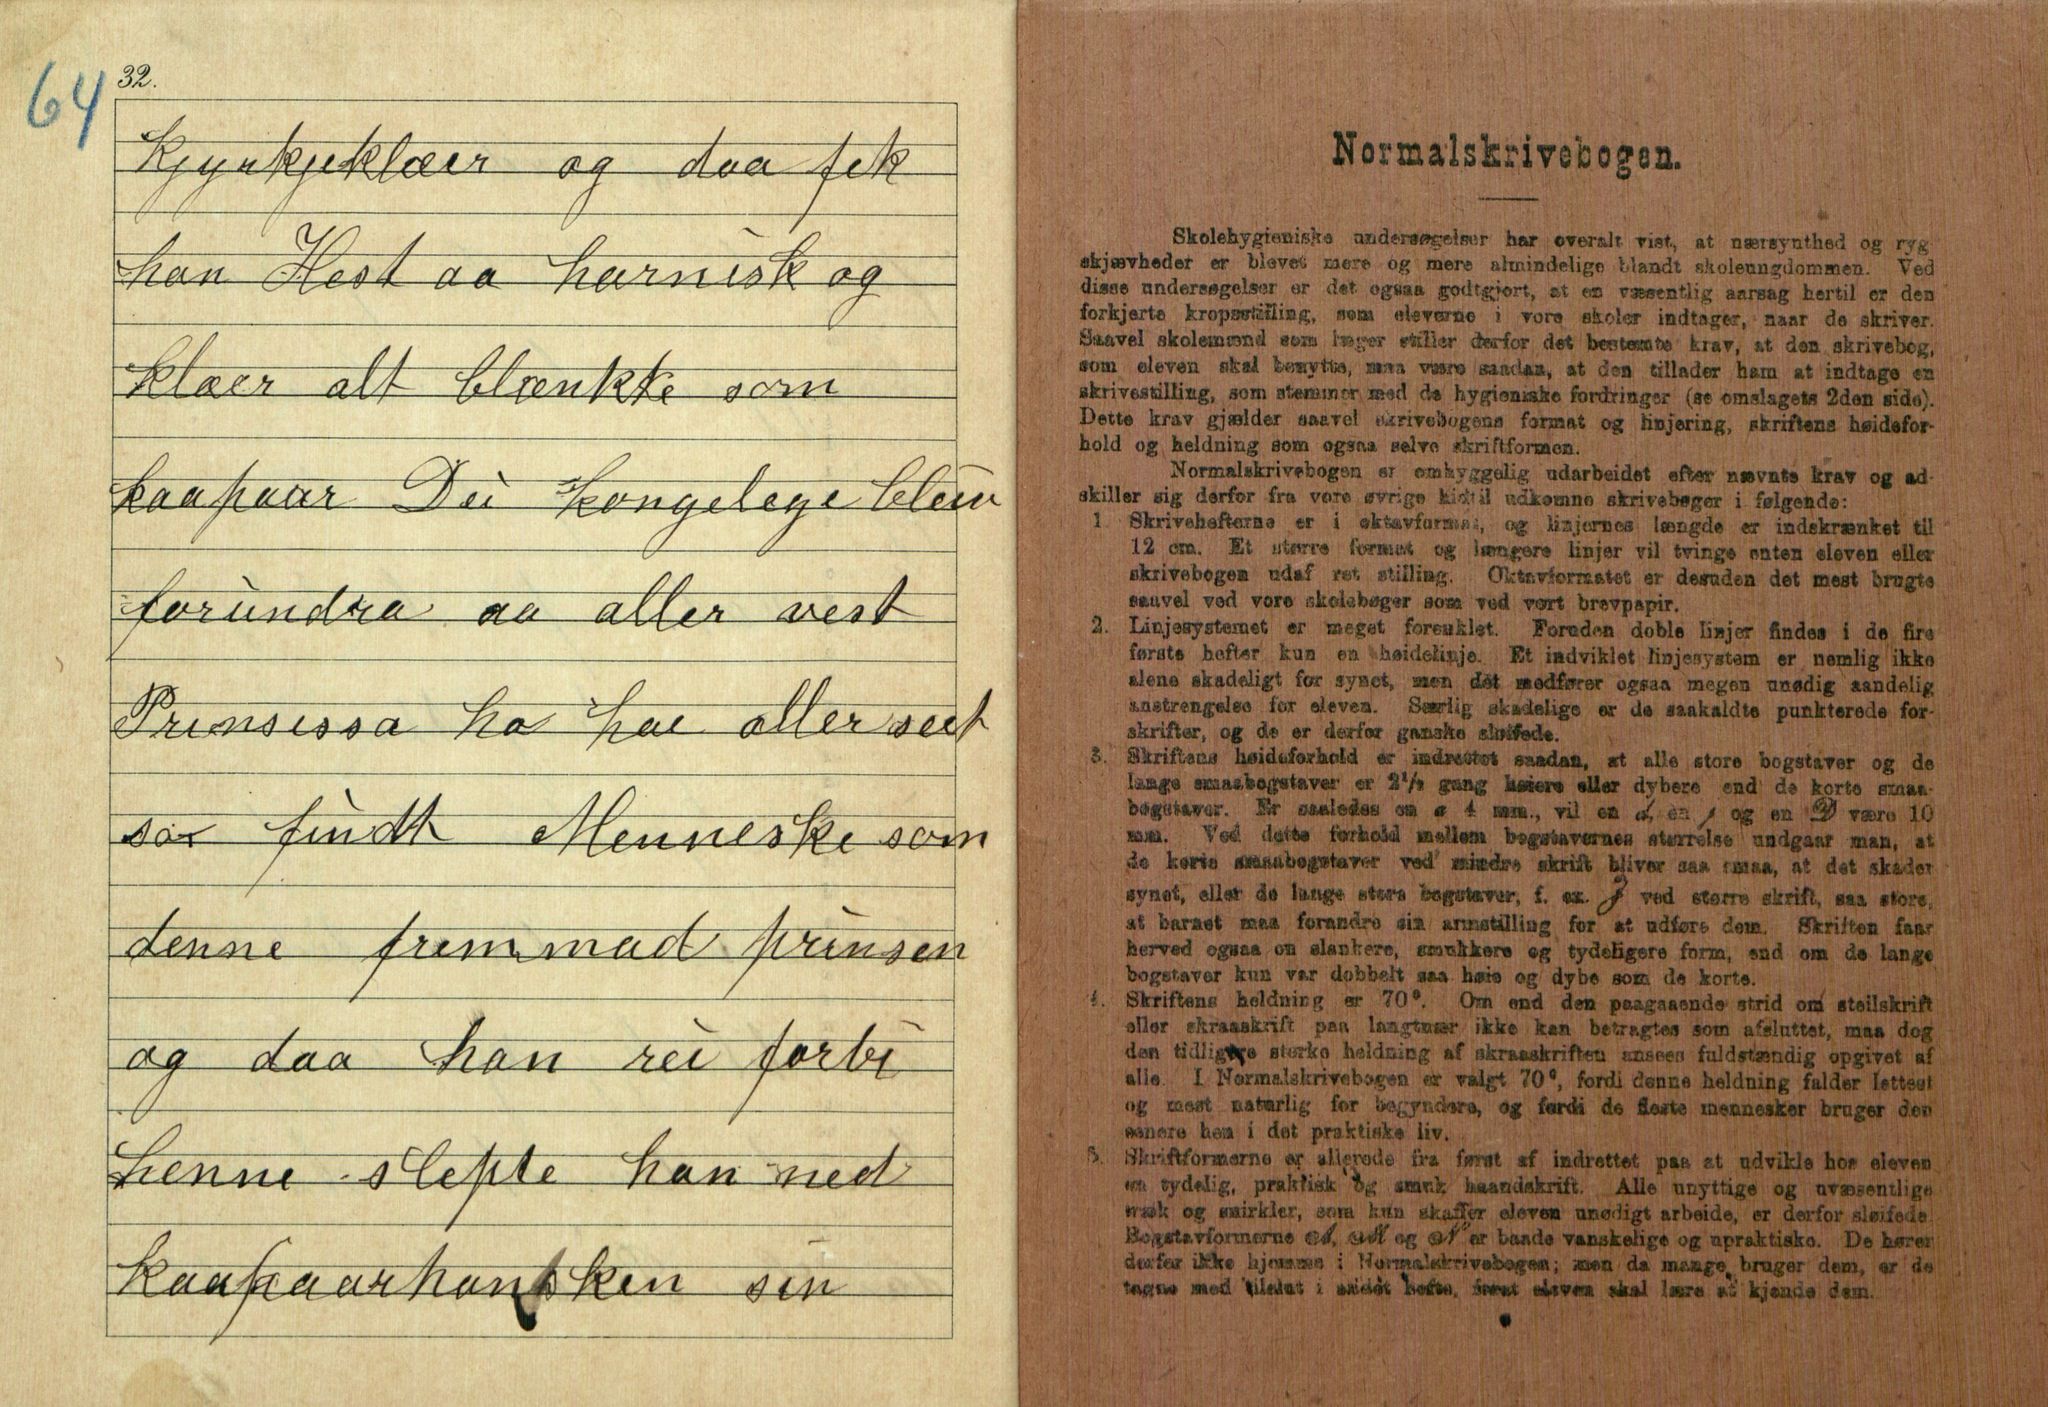 64
32.
kjyrkjeklæer og daa fek
han Hest aa harnisk og
klæer alt blænkte som
kaapaar Dei kongelege bleiv
forundra aa aller vest
Prinsessa ho hae aller seet
so findt Menneske som
denne fremmad prinsen
og daa han rei forbi
henne slepte han ned
kaapaarhansken sin
Normalskrivebogen.
Skolehygieniske undersøgelser har overalt vist, at nærsynthed og ryg-
skjævheder er blevet mere og mere almindelige blandt skoleungdommen. Ved
disse undersøgelser er det ogsaa godtgjort, at en væsentlig aarsag hertil er den
forkjerte kropsstilling, som eleverne i vore skoler indtager, naar de skriver.
Saavel skolemænd som læger stiller derfor det bestemte krav, at den skrivebog,
som eleven skal benytte, maa være saadan, at den tillader ham at indtage en
skrivestilling, som stemmer med de hygieniske fordringer (se omslagets 2den side).
Dette krav gjælder saavel skrivebogens format og linjering, skriftens høidefor-
hold og heldning som ogsaa selve skriftformen.
Normalskrivebogen er omhyggelig udarbeidet efter nævnte krav og ad-
skiller sig derfor fra vore øvrige hidtil udkomne skrivebøger i følgende:
1. Skrivehefterne er i oktavformat, og linjernes længde er indskrænket til
12 cm. Et større format og længere linjer vil tvinge enten eleven eller
skrivebogen udaf ret stilling. Oktavformatet er desuden det mest brugte
saavel ved vore skolebøger som ved vort brevpapir.
2. Linjesystemet er meget forenklet. Foruden doble linjer findes i de fire
første hefter kun en høidelinje. Et indviklet linjesystem er nemlig ikke
alene skadeligt for synet, men det medfører ogsaa megen unødig aandelig
anstrengelse for eleven. Særlig skadelige er de saakaldte punkterede for-
skrifter, og de er derfor ganske sløifede.
3. Skriftens høideforhold er indrettet saadan, at alle store bogstaver og de
lange smaabogstaver er 2½ gang høiere eller dybere end de korte smaa-
bogstaver. Er saaledes en a 4 mm., vil en d, en j og en D være 10
mm. Ved dette forhold mellem bogstavernes størrelse undgaar man, at
de korte smaabogstaver ved mindre skrift bliver saa smaa, at det skader
synet, eller de lange store bogstaver, f. ex. J ved større skrift, saa store,
at barnet maa forandre sin armstilling for at udføre dem. Skriften faar
herved ogsaa en slankere, smukkere og tydeligere form, end om de lange
bogstaver kun var dobbelt saa høie og dybe som de korte.
4. Skriftens heldning er 70°. Om end den paagaaende strid om steilskrift
eller skraaskrift paa langtnær ikke kan betragtes som afsluttet, maa dog
den tidligere sterke heldning af skraaskriften ansees fuldstændig opgivet af
alle. I Normalskrivebogen er valgt 70°, fordi denne heldning falder lettest
og mest naturlig for begyndere, og fordi de fleste mennesker bruger den
senere hen i det praktiske liv.
5. Skriftformerne er allerede fra først af indrettet paa at udvikle hos eleven
en tydelig, praktisk og smuk haandskrift. Alle unyttige og uvæsentlige
træk og snirkler, som kun skaffer eleven unødigt arbeide, er derfor sløifede.
Bogstavformerne A, M og N er baade vanskelige og upraktiske. De hører
derfor ikke hjemme i Normalskrivebogen; men da mange bruger dem, er de
tagne med tilslut i sidste hefte, forat eleven skal lære at kjende dem.